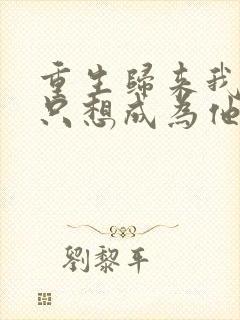 重生歸来我
只想成為他
劉黎平